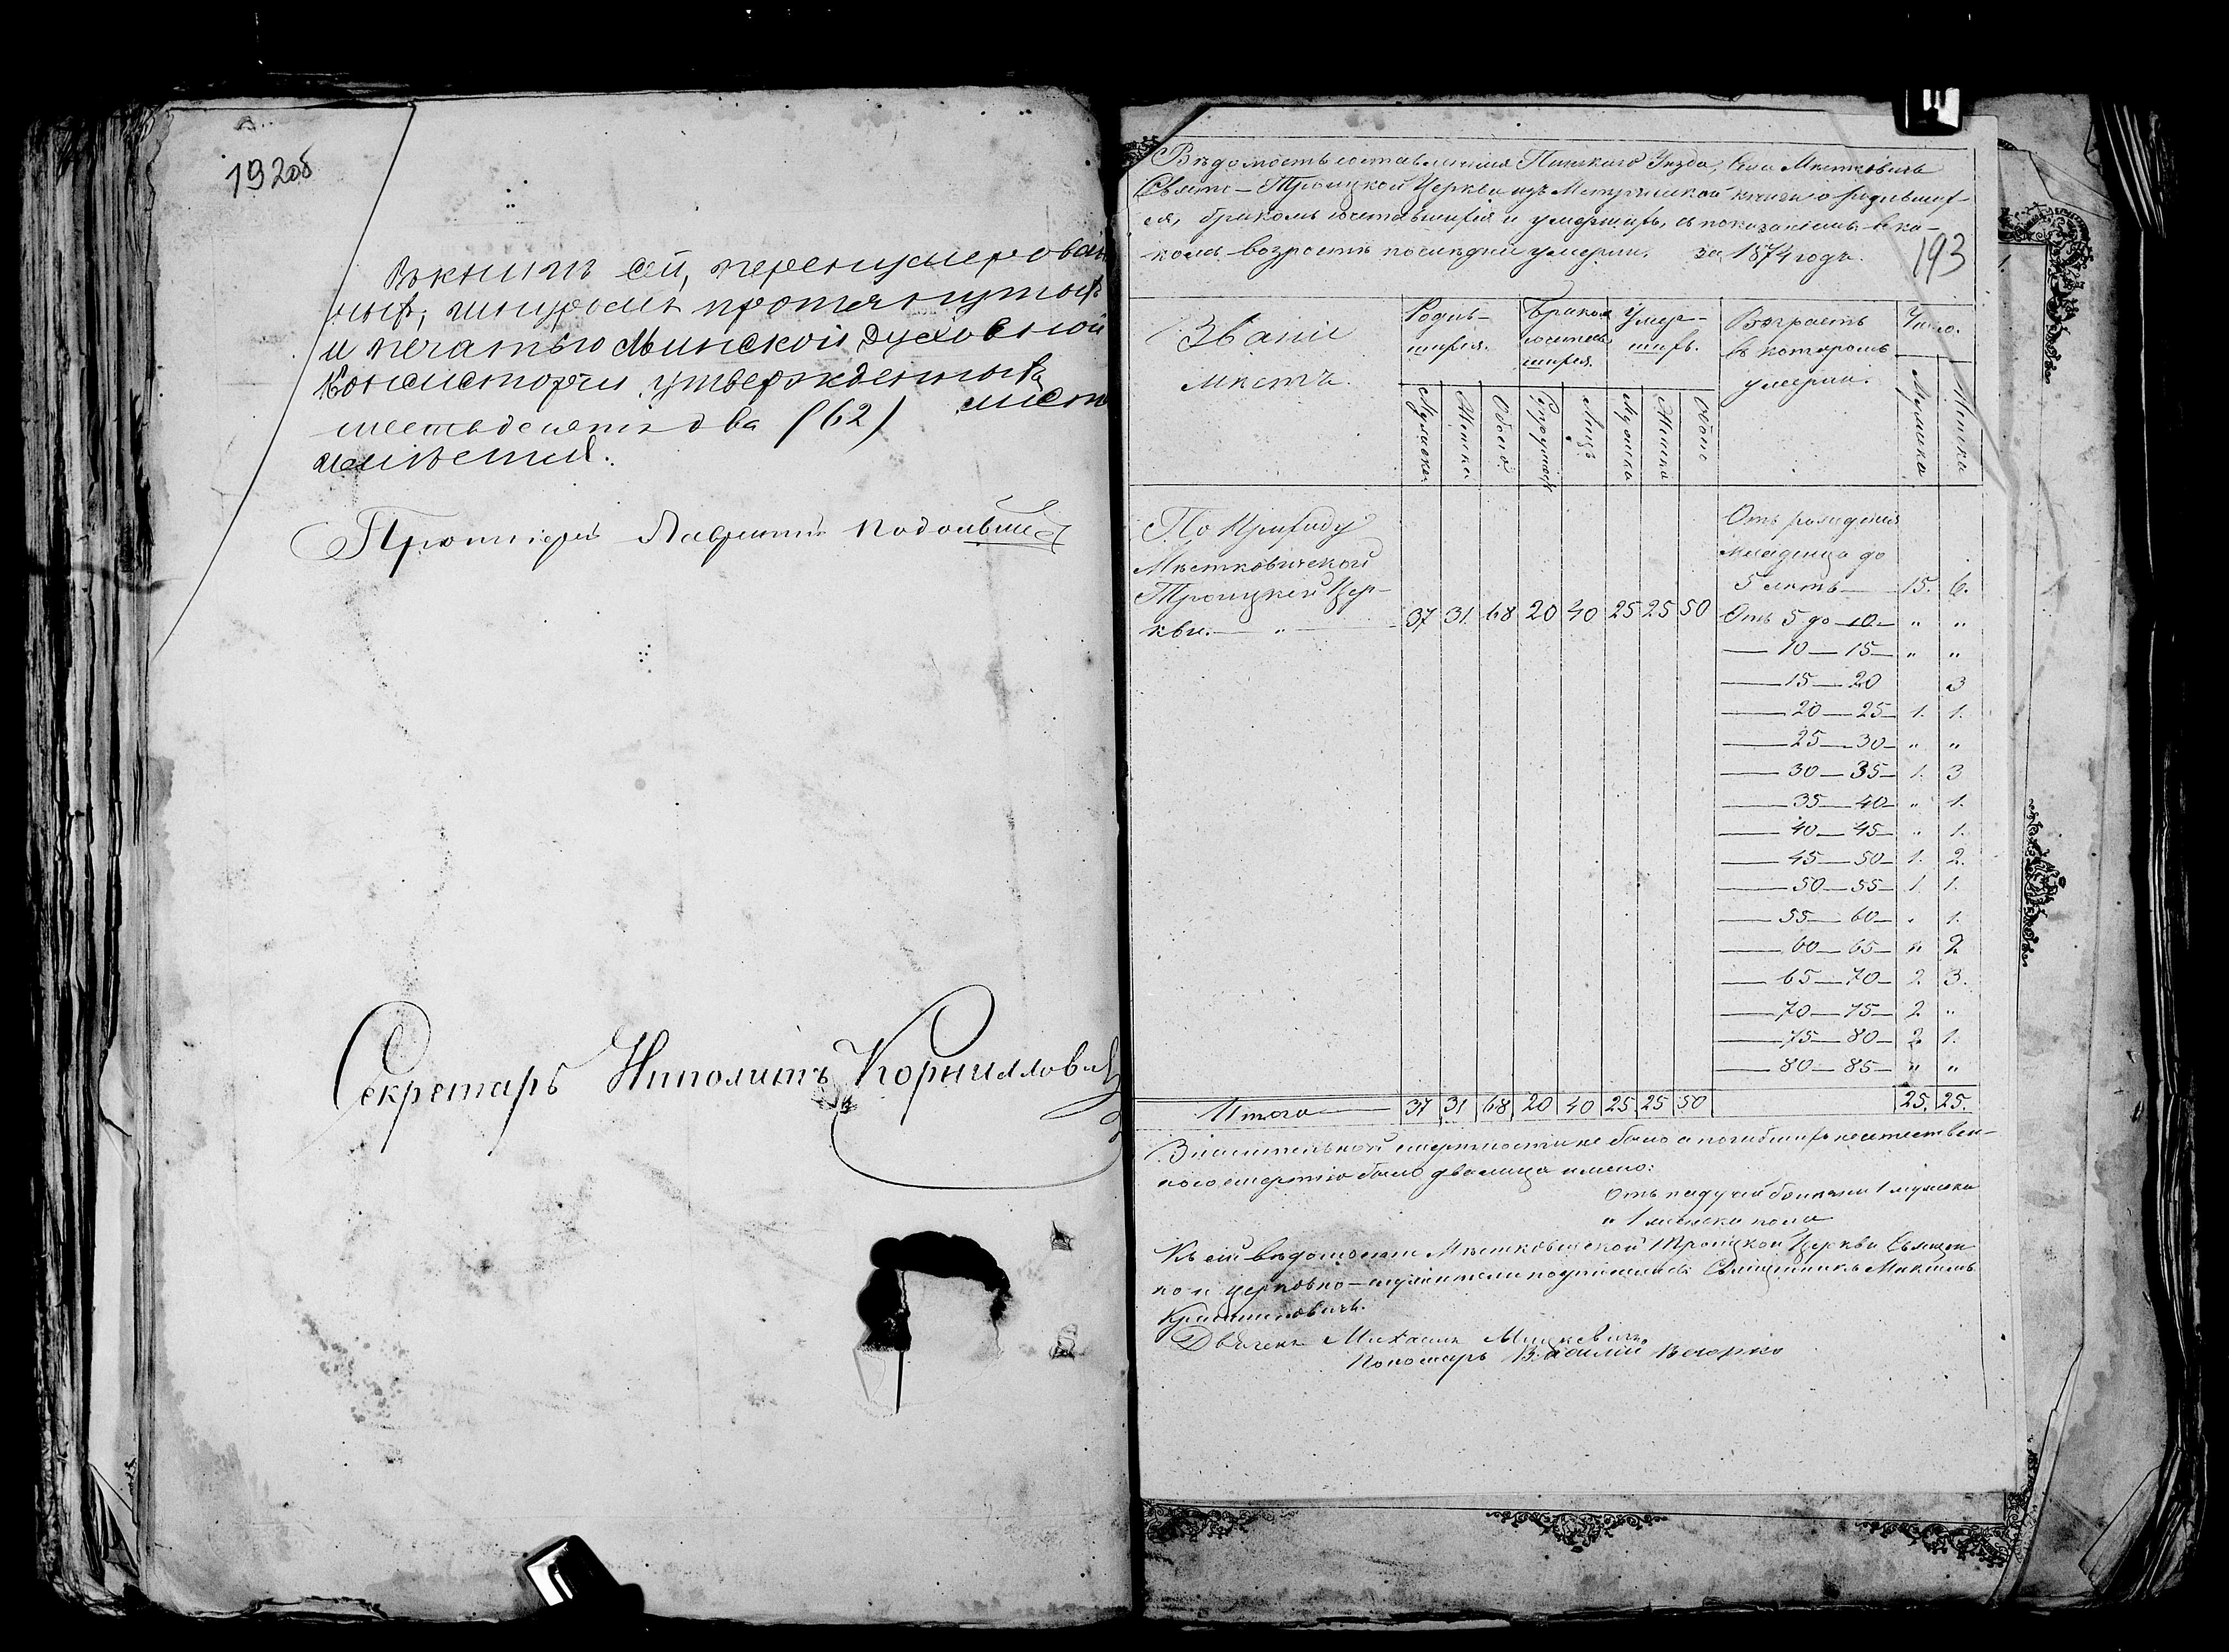 192об
Въ книгѣ сей, перенумерован
ныхъ, шнуромъ протянутыхъ
и печатью Минской Духовной
Консисторіи утвержденныхъ
листо
шестьдесятъ два (62)
Протоіерей Лаврентій
Секретарь Ипполитъ Корнилловичъ
193
Вѣдомость составленная Пинскаго Уѣзда, Села Мѣстковичъ
Свято-Троицкой Церкви изъ Метрической книги о родивших-
ся, бракомъ сочетавшихся и умершихъ, съ показаніемъ въ ка-
комъ возрастѣ послѣдніе умерли. за 1874 годъ.
Званіе мѣстъ.
Родив-шихся.
Бракомъ сочетав-шихся.
Умер-шихъ.
Возрастъ въ которомъ умерли.
Число.
Мужска Женска Обоего Супружествъ Лицъ Мужска Женска Обоего Мужска Женска
По Приходу
Мѣстковичской
Троицкой Цер-
кви. — " — 37 31. 68 20 40 25 25 50
Отъ рожденія
младенца до
5 лѣтъ — 15. 6.
Отъ 5 до 10 — " "
— 10 — 15 — " "
— 15 — 20 3
— 20 — 25 — 1. 1.
— 25 — 30 — " "
— 30 — 35 — 1. 3
— 35 — 40 — " 1.
— 40 — 45 — " 1.
— 45 — 50 — 1. 2.
— 50 — 55 — 1. 1.
— 55 — 60 — " 1.
— 60 — 65 — " 2
— 65 — 70 — 2 3.
— 70 — 75 — 2 "
— 75 — 80 — 2 1.
— 80 — 85 — " "
Итого — 37 31 68 20 40 25 25 50 25. 25.
Значительной смертности не было а погибшихъ неестествен-
ною смертію было два лица имено:
Отъ падучей болѣзни 1 мужска
и 1 женска пола
Къ сей вѣдомости Мѣстковичской Троицкой Церкви Священ
но и церковно-служители подписались: Священникъ
Дьячекъ Михаилъ Мицкевичъ
Пономарь Василій